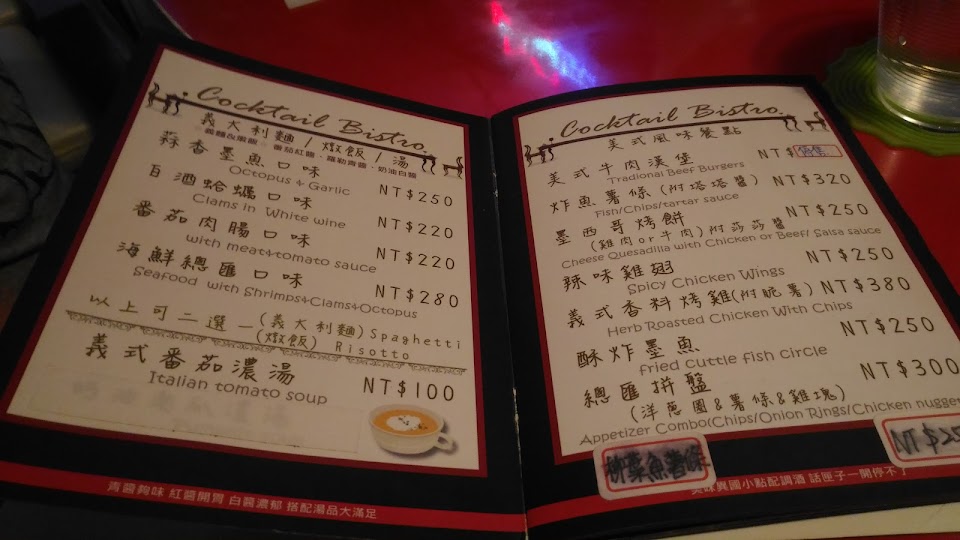 Cocktail Bistro.
義大利麵/燉飯/湯
蒜香墨魚口味
Octopus & Garlic
NT$250
白酒蛤蠣口味
Clams in White wine
NT$220
番茄肉腸口味
with meat&tomato sauce
NT$220
海鮮總匯口味
Seafood with Shrimps&Clams&Octopus
NT$280
以上可二選一(義大利麵)Spaghetti
(燉飯) Risotto
義式番茄濃湯
Italian tomato soup
NT$100
青醬夠味 紅醬開胃 白醬濃郁 搭配湯品大滿足
Cocktail Bistro.
美式風味餐點
美式牛肉漢堡 NT$
Tradional Beef Burgers
炸魚薯條(附塔塔醬) NT$320
Fish/Chips/tartar sauce
墨西哥烤餅 NT$250
(雞肉or牛肉)附莎莎醬
Cheese Quesadilla with Chicken or Beef/ Salsa sauce
辣味雞翅 NT$250
Spicy Chicken Wings
義式香料烤雞(附脆薯) NT$380
Herb Roasted Chicken With Chips
酥炸墨魚 NT$250
fried cuttle fish circle
總匯拼盤 NT$300
(洋蔥圈&薯條&雞塊)
Appetizer Combo(Chips/Onion Rings/Chicken nugge
魚薯條
NT$25
美味異國小點配調酒 話匣子一開停不了